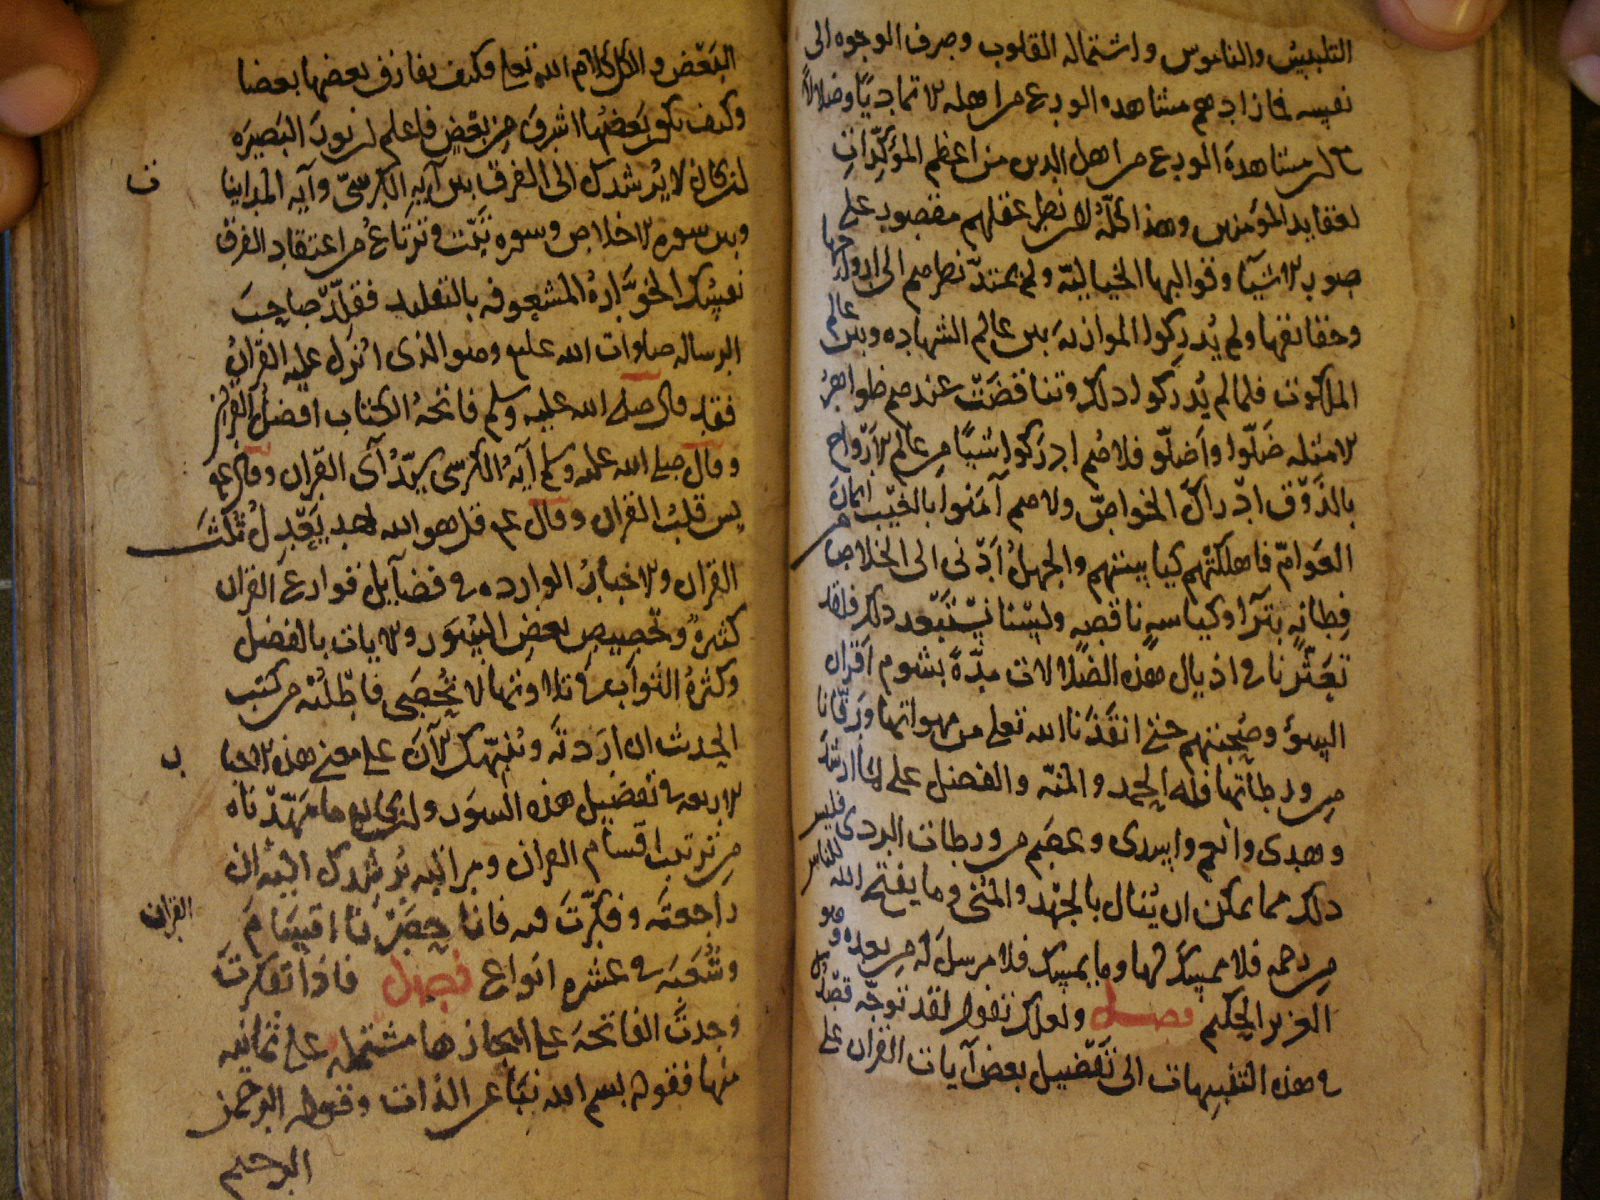 التلبيس والناموس واستمالة القلوب وصرف الوجوه الى
نفسه فما زادهم مشاهده الورع من اهله الا تماديا وضلالا
مع ان مشاهدة الورع من اهل الدين من اعظم المؤكدات
لعقايد المؤمنين وهذا كله لان نظر عقلهم مقصور على
صور الاشيا وقوالبها الخيالية ولم يمتد نظرهم الى ارواحها
وحقائقها ولم يدركوا الموازنة بين عالم الشهادة وبين عالم
الملكوت فلما لم يدركوا ذلك وتناقضت عندهم ظواهر
الاسئلة ضلوا واضلوا فلا هم ادركوا شيئا من عالم الارواح
بالذوق ادراك الخواص ولا هم آمنوا بالغيب ايمان
العوام فاهلكتهم كياستهم والجهل ادنى الى الخلاص من
فطانة بتراء وكياسة ناقصة ولسنا نستبعد ذلك فلقد
تعثرنا في اذيال هذه الضلالات مدة بشوم اقران
السوء وصحبتهم حتى انقذنا الله تعلى من هفواتها ووقانا
من ورطاتها فله الحمد والمنة والفضل على ما ارشد
وهدى وانعم واسدى وعصم من ورطات الردى فليس
ذلك مما يمكن ان ينال بالجهد والمنى وما يفتح الله للناس
من رحمة فلا ممسك لها وما يمسك فلا مرسل له من بعده وهو
العزيز الحكيم فصل ولعلك تقول لقد توجه قصدك
في هذه التنبيهات الى تفضيل بعض آيات القران على
البعض والكل كلام الله تعلى وكيف يفارق بعضها بعضا
وكيف يكون بعضها اشرف من بعض فاعلم ان نور البصيرة
ان كان لا يرشدك الى الفرق بين آية الكرسي وآية المداينات
وبين سورة الاخلاص وسورة تبت وترتاع من اعتقاد الفرق
نفسك الخوارة المشعوفة بالتقليد فقلد صاحب
الرسالة صلوات الله عليه وهو الذى انزل عليه القران
فقد قال صلى الله عليه وسلم فاتحة الكتاب افضل القران
وقال صلى الله عليه وسلم آية الكرسى سيدة آى القران وقال عم
يس قلب القران وقال عم قل هو الله احد يعدل ثلث
القران والاخبار الواردة في فضايل قوارع القران
كثيرة وتخصيص بعض السور والايات بالفضل
وكثرة الثواب في تلاوتها لا تحصى فاطلبه من كتب
الحديث ان اردته وننبهك الآن على معنى هذه الاخبار
الاربعة في تفضيل هذه السور وان كان ما مهدناه
من ترتيب اقسام القران ومراتبه يرشدك اليه ان
راجعته وفكرت فيه فانا حصرنا اقسام القران
وشعبه في عشرة انواع فصل فاذا تفكرت
وجدت الفاتحة على ايجازها مشتملة على ثمانية
منها فقوله بسم الله نبأ عن الذات وقوله الرحمن
الرحيم